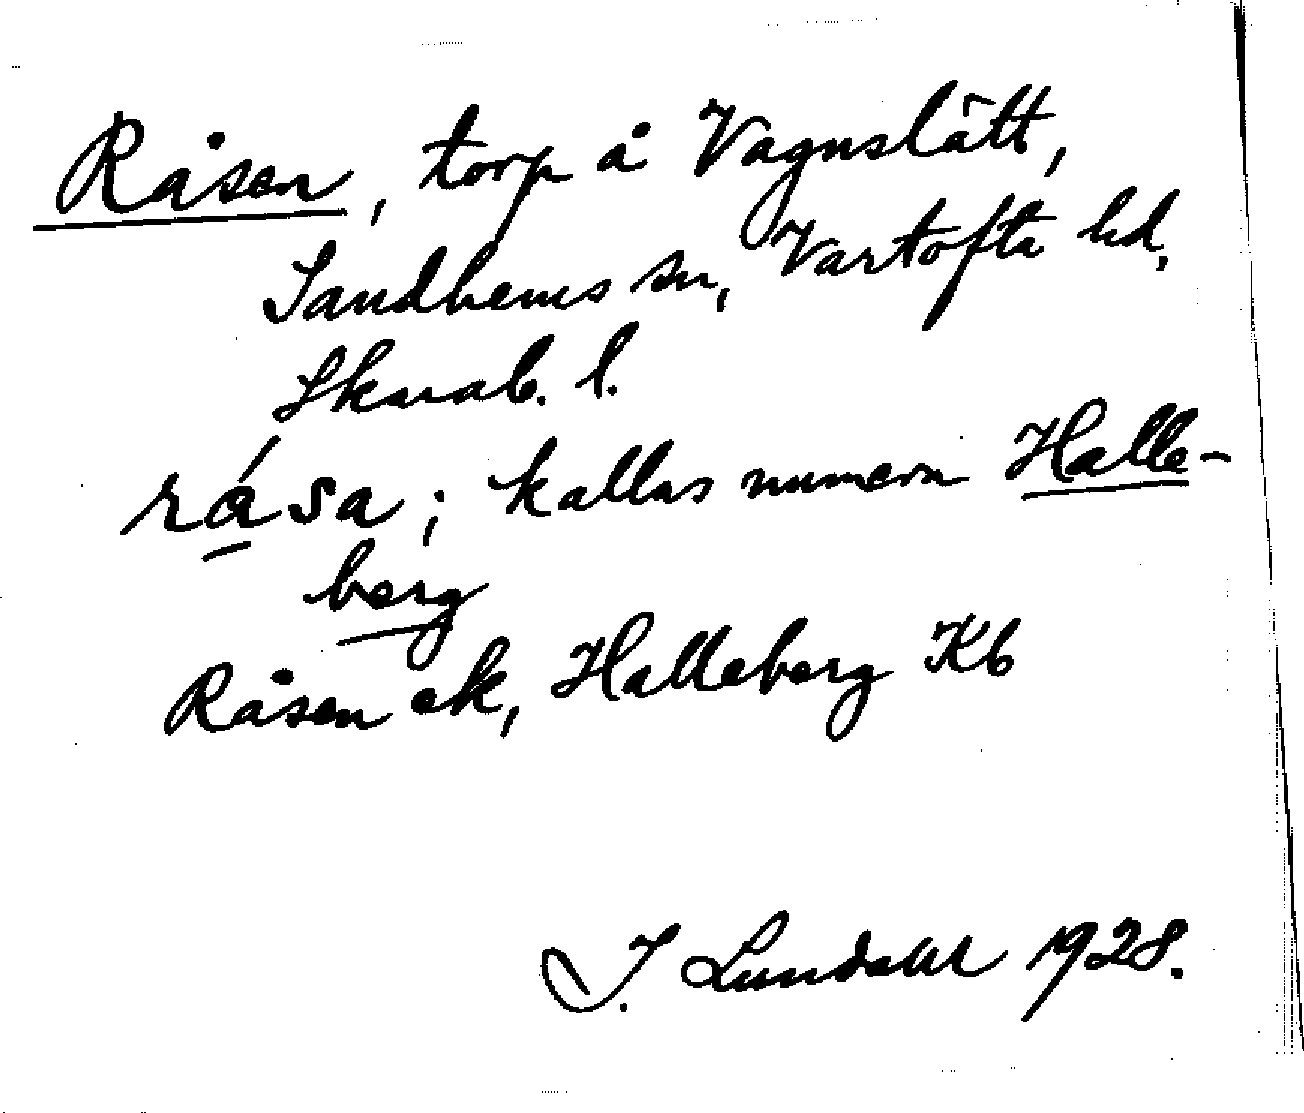 Råsen, torp å Vagnslätt,
Sandhems sn, Vartofta hd,
Skarab. l.
rá̱sa; kallas numera Halle-
berg
Råsen ek, Halleberg Kb
I. Lundahl 1928.